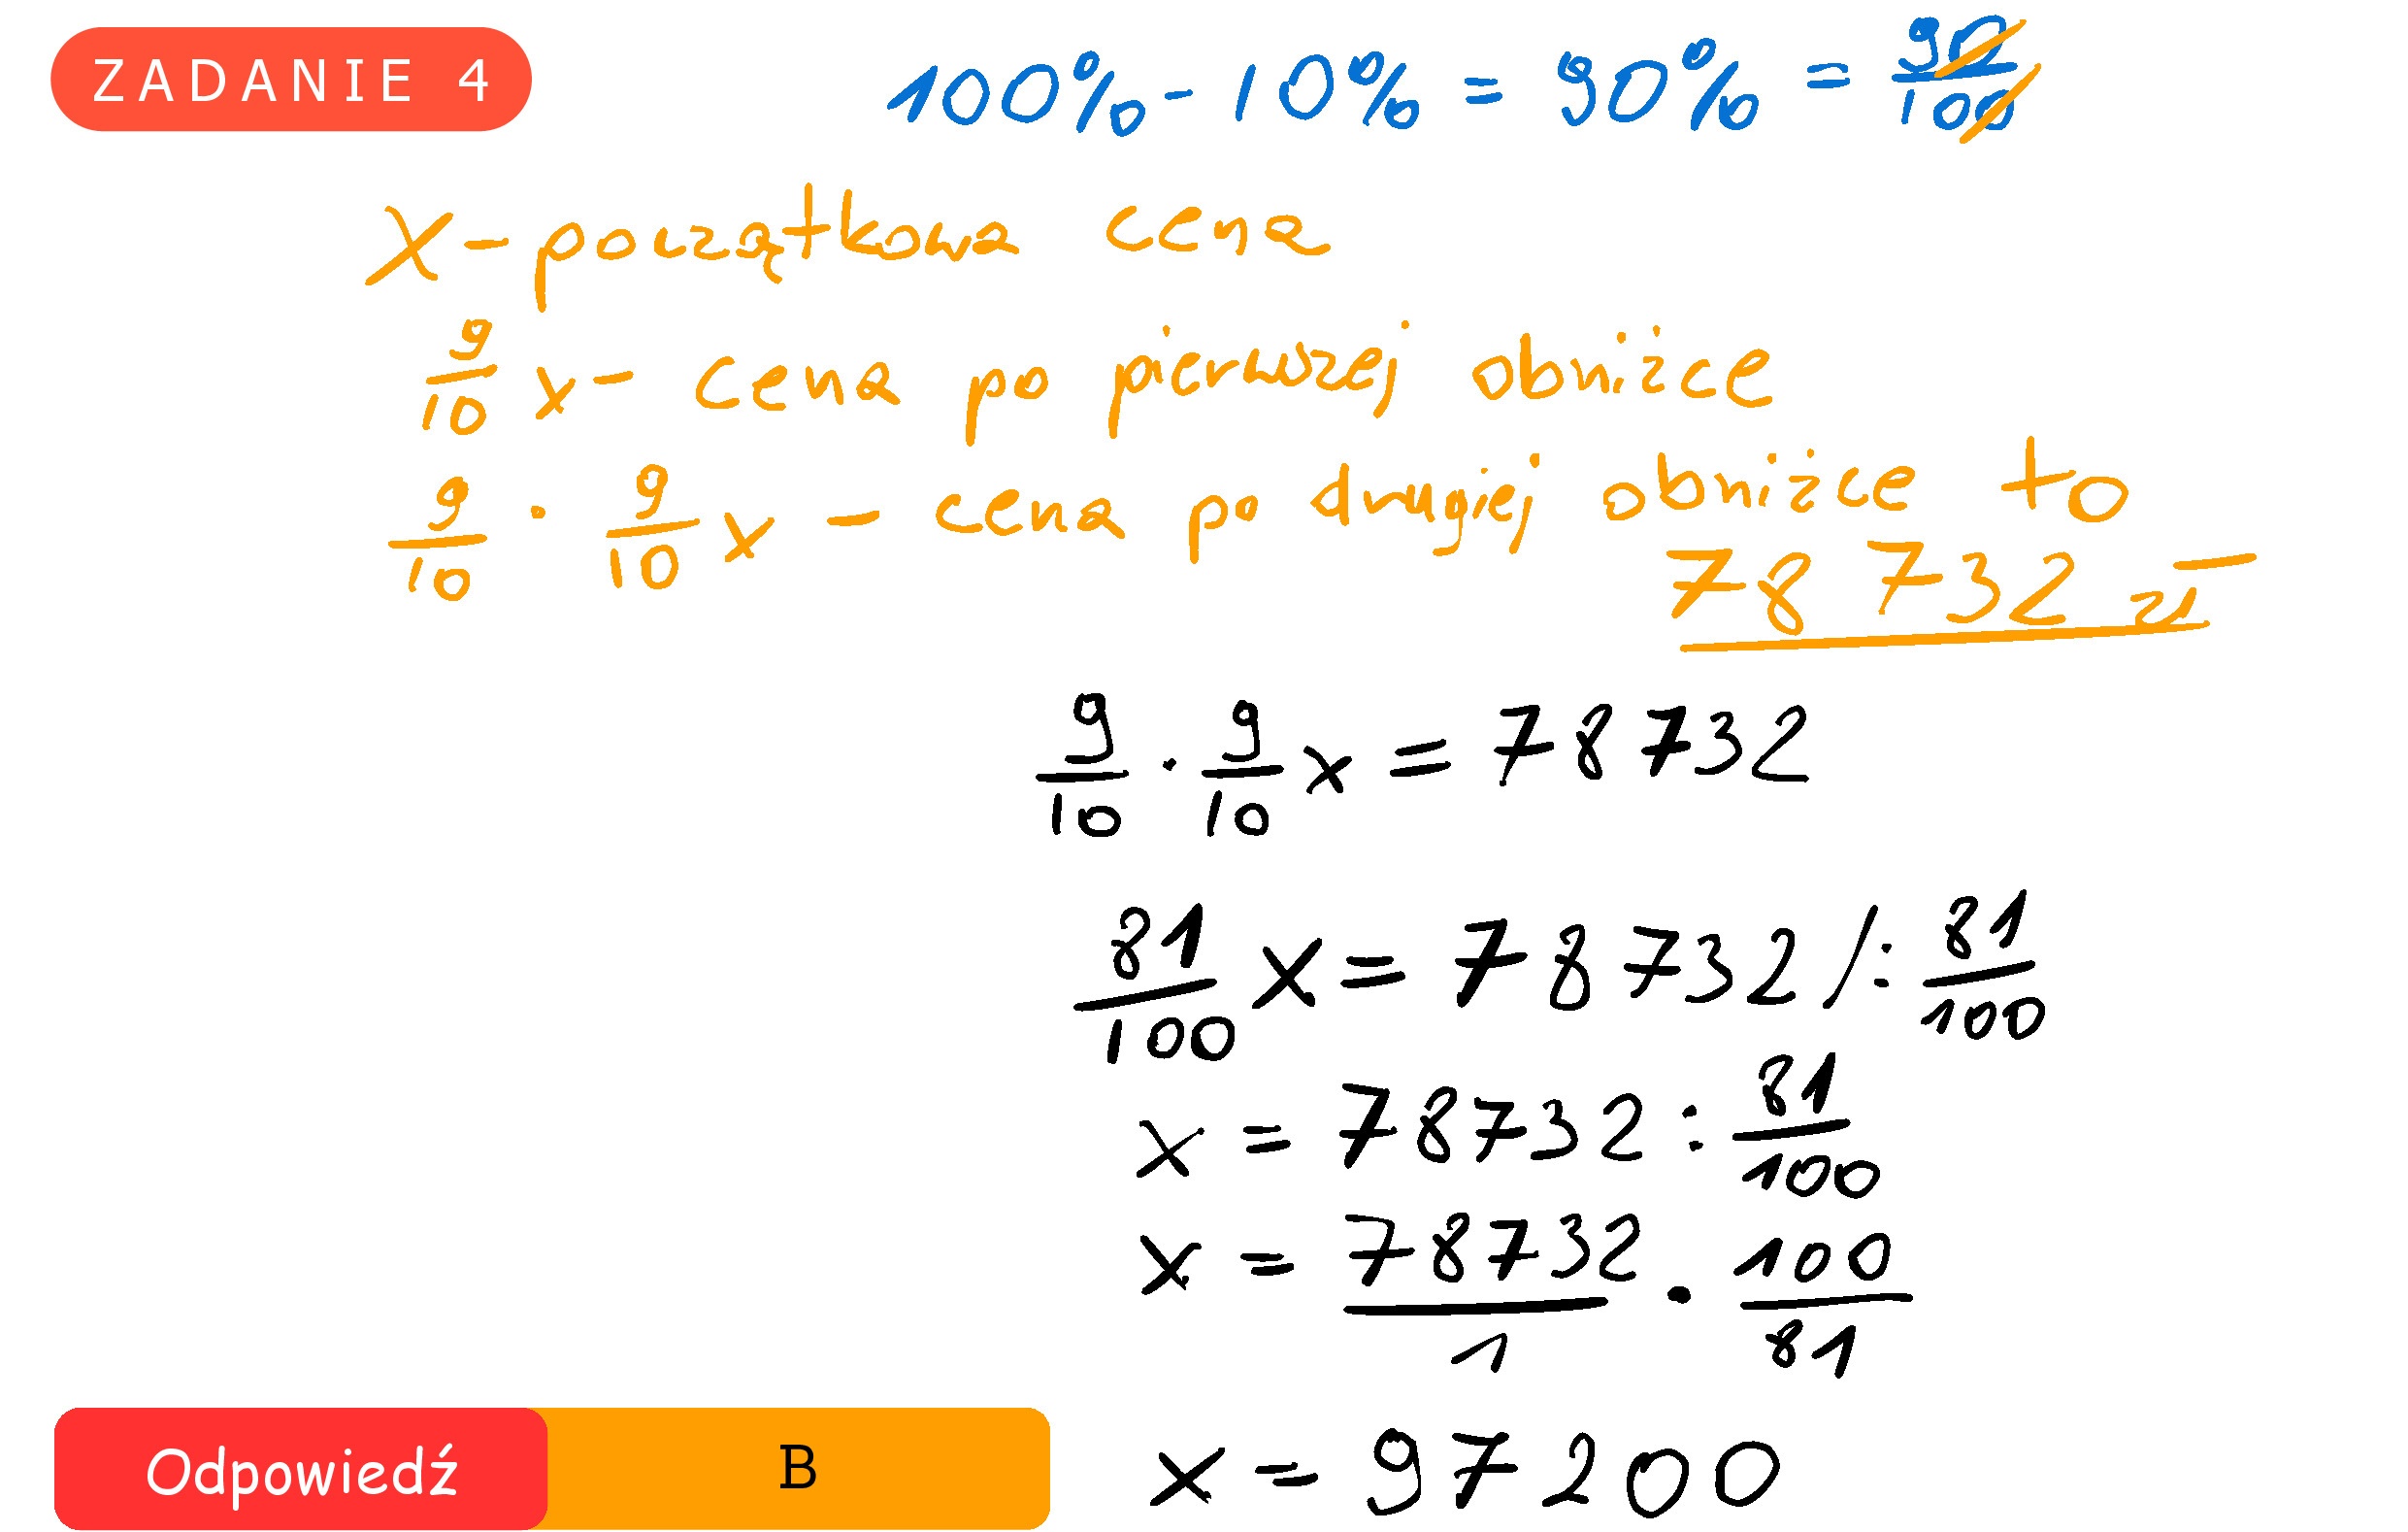 ZADANIE 4
100% - 10% = 90% = 90/100
x - początkowa cena
9/10 x - cena po pierwszej obniżce
9/10 · 9/10 x - cena po drugiej obniżce to
78 732 zł
9/10 · 9/10 x = 78732
81/100 x = 78732 /: 81/100
x = 78732 : 81/100
x = 78732/1 · 100/81
x = 97200
Odpowiedź B